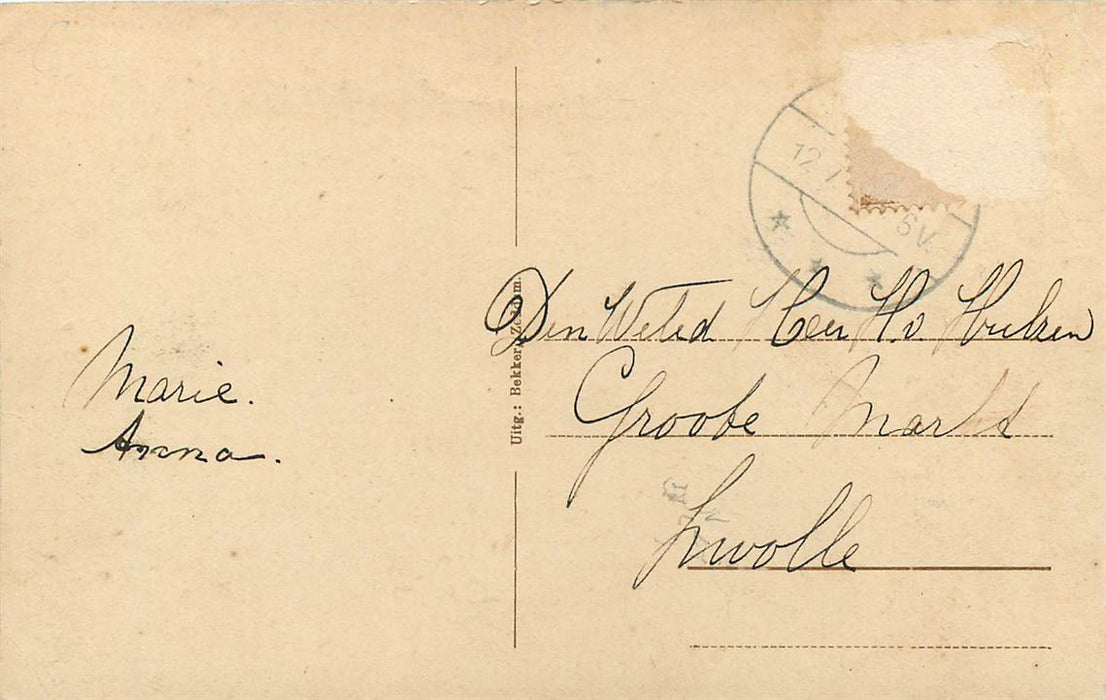 Marie.
Anna.
Uitg.: Bekker, Zeddam.
12.7
6V.
Den Weled Heer H. v. Hulzen
Groote Markt
Zwolle